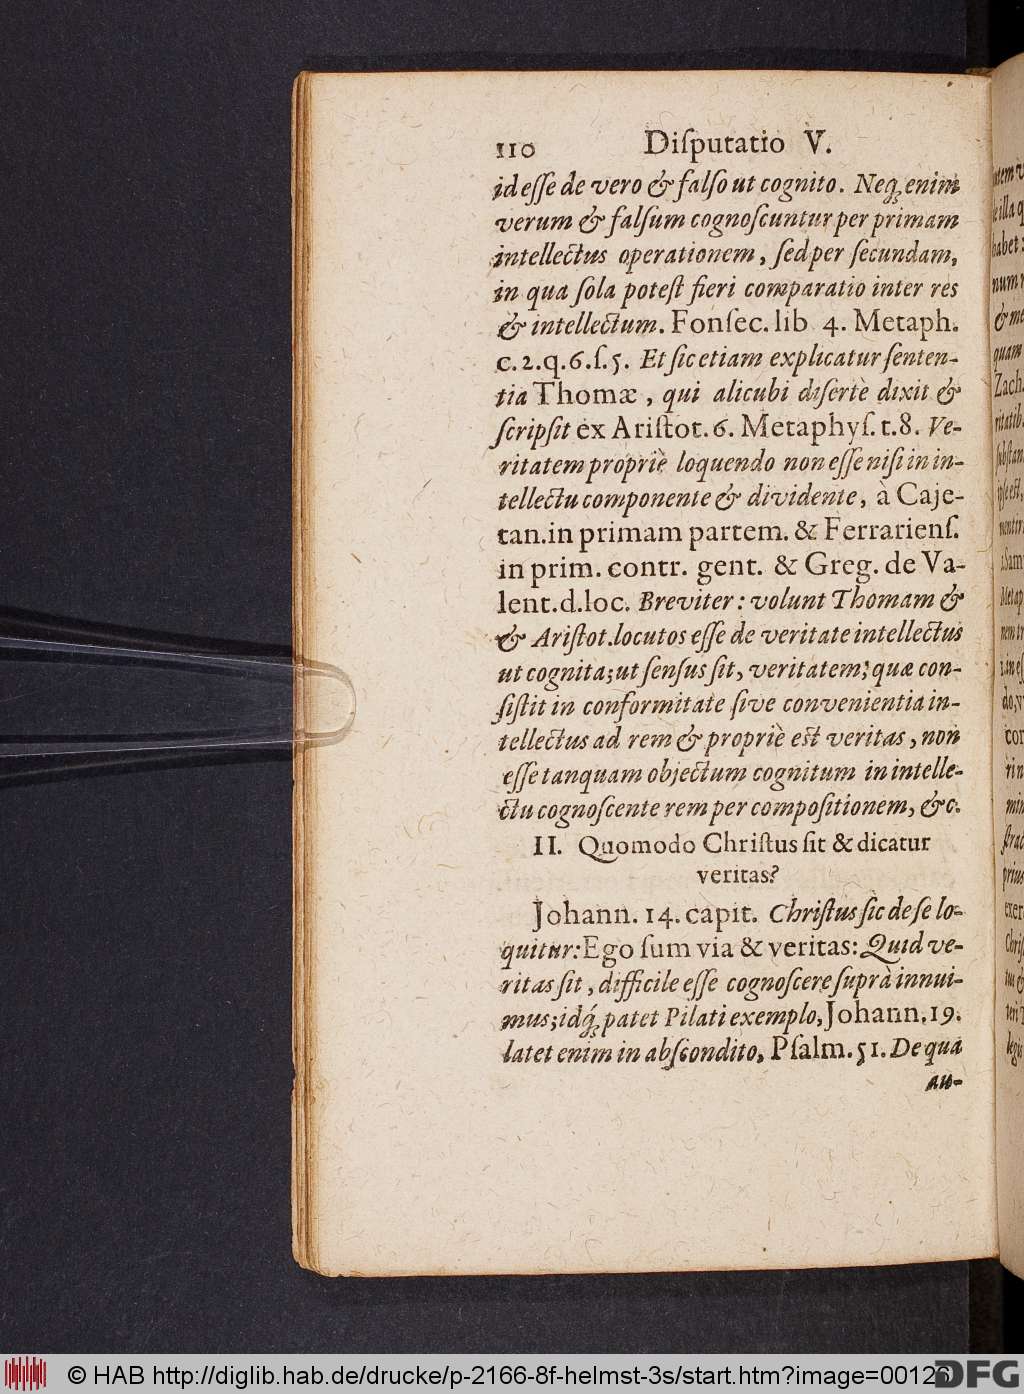 110 Diſputatio V.
id eſſe de vero & falſo ut cognito. Neq; enim
verum & falſum cognoſcuntur per primam
intellectus operationem, ſed per ſecundam,
in qua ſola poteſt fieri comparatio inter res
& intellectum. Fonſec. lib 4. Metaph.
c. 2. q. 6. ſ. 5. Et ſic etiam explicatur ſenten-
tia Thomæ, qui alicubi diſertè dixit &
ſcripſit ex Ariſtot. 6. Metaphyſ. t. 8. Ve-
ritatem propriè loquendo non eſſe niſi in in-
tellectu componente & dividente, à Caje-
tan. in primam partem. & Ferrarienſ.
in prim. contr. gent. & Greg. de Va-
lent. d. loc. Breviter: volunt Thomam &
& Ariſtot. locutos eſſe de veritate intellectus
ut cognita; ut ſenſus ſit, veritatem, quæ con-
ſiſtit in conformitate ſive convenientia in-
tellectus ad rem & propriè est veritas, non
eſſe tanquam objectum cognitum in intelle-
ctu cognoſcente rem per compoſitionem, &c.
II. Quomodo Chriſtus ſit & dicatur
veritas?
Johann. 14. capit. Chriſtus ſic de ſe lo-
quitur: Ego ſum via & veritas: Quid ve-
ritas ſit, difficile eſſe cognoſcere ſuprà innui-
mus; idq́; patet Pilati exemplo, Johann. 19.
latet enim in abſcondito, Pſalm. 51. De quâ
au-
utem
illa q
habet:
num
& me
quam
Zach.
ritatib.
© HAB http://diglib.hab.de/drucke/p-2166-8f-helmst-3s/start.htm?image=00126
DFG